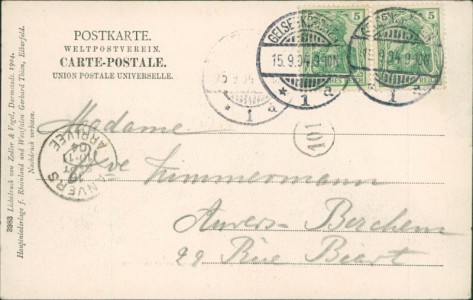 POSTKARTE.
WELTPOSTVEREIN.
CARTE-POSTALE.
UNION POSTALE UNIVERSELLE.
GELSENKIRCHEN
15.9.04.9-10V.
* 1 a
5
5
15.9.04
* 1 a
101
ANVERS
ARRIVÉE
Madame
Vve Zimmermann
Anvers-Berchem
22 Rue Biart
3983 Lichtdruck von Zedler & Vogel, Darmstadt. 1904.
Hauptniederlage f. Rheinland und Westfalen Gerhard Thien, Elberfeld.
Nachdruck verboten.